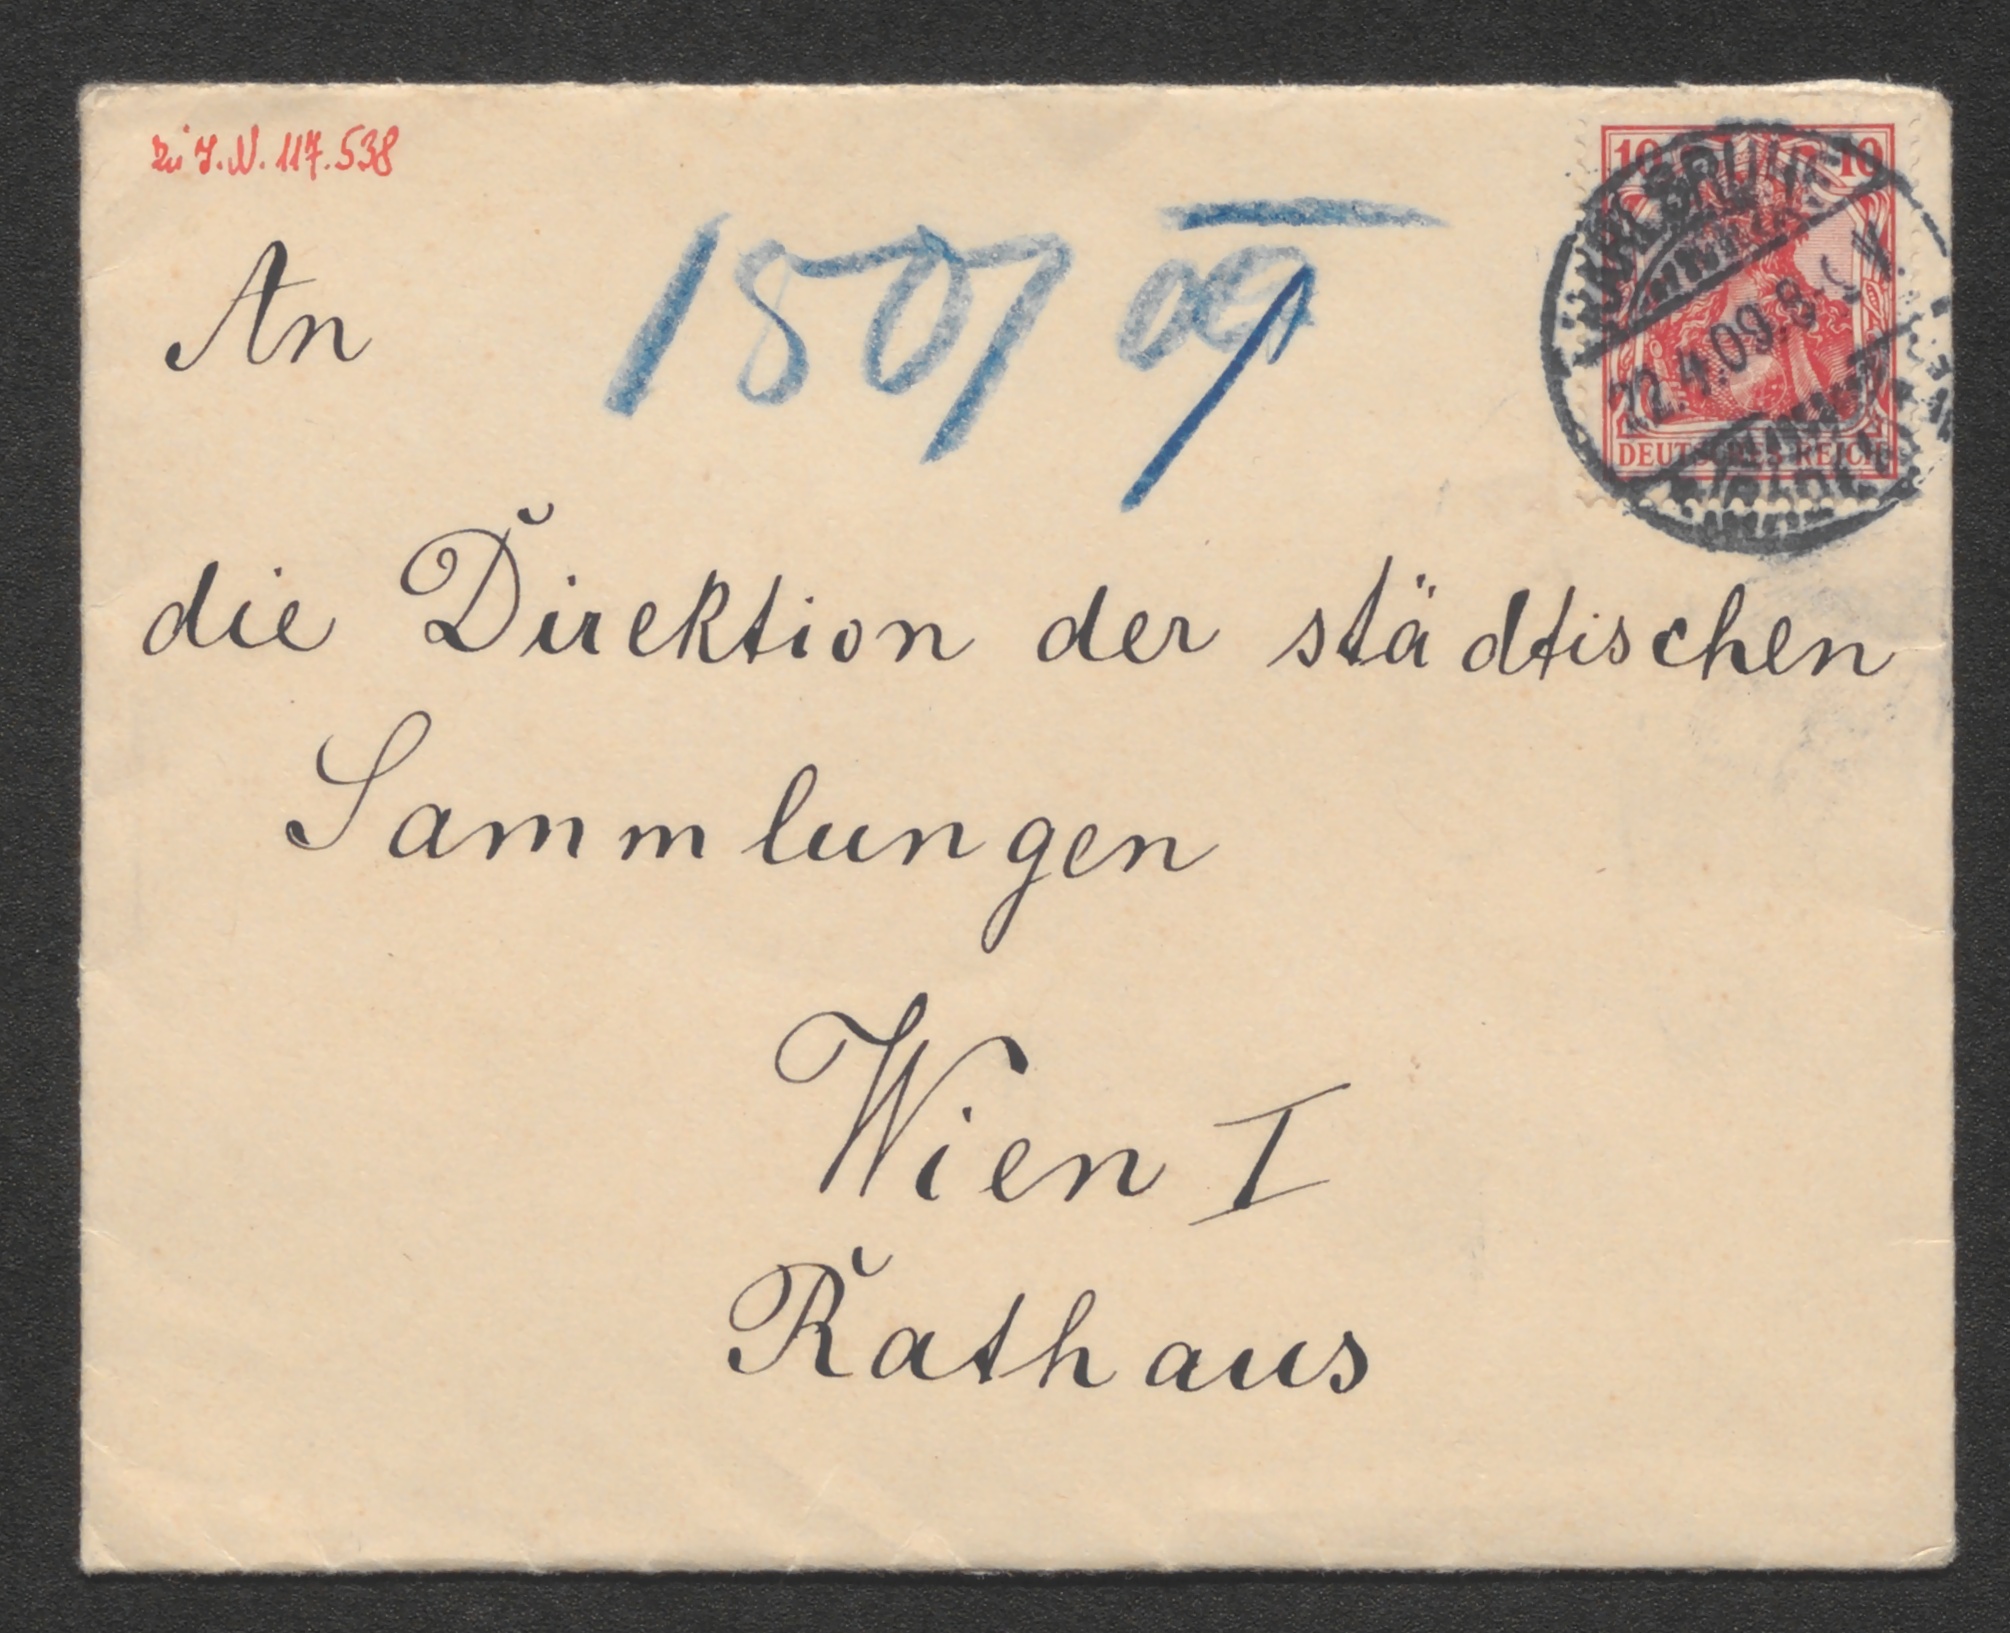 zu I.N. 117.538
10 10
KARLSRUHE
22.4.09.8-9 V.
DEUTSCHES REICH
150/09
An
die Direktion der städtischen
Sammlungen
Wien I
Rathaus